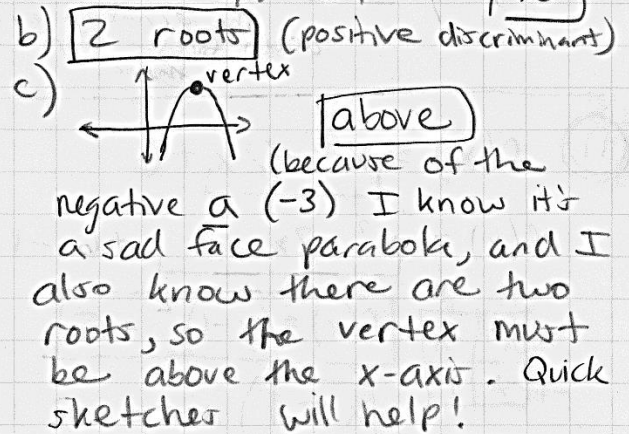 b) 2 roots (positive discriminant)
c) vertex
above
(because of the
negative a (-3) I know it's
a sad face parabola, and I
also know there are two
roots, so the vertex must
be above the x-axis. Quick
sketches will help!